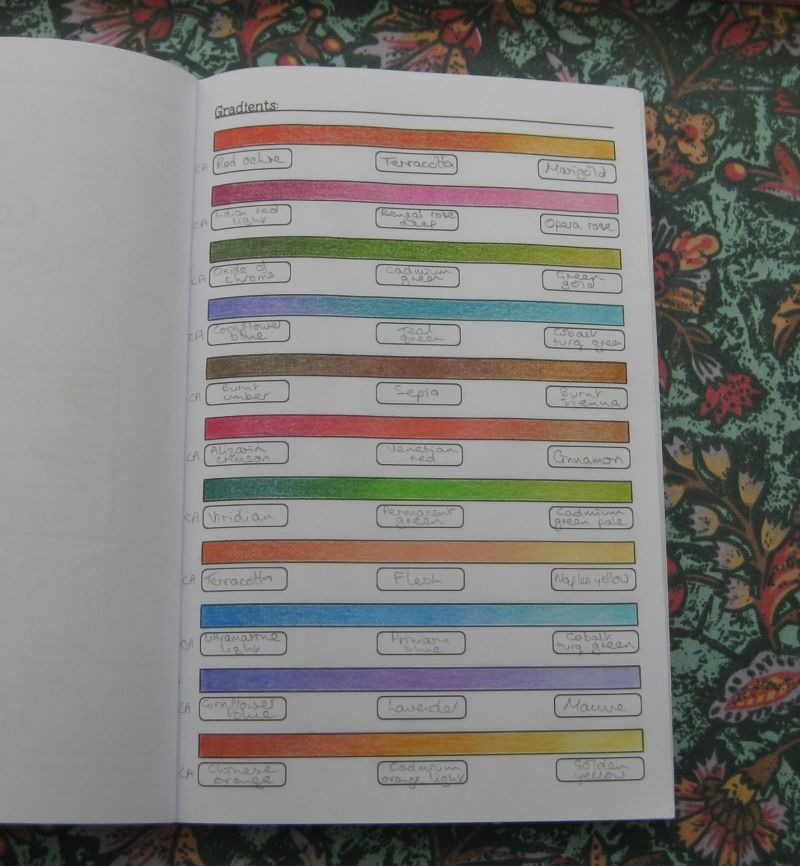 Gradients:
CA Red ochre Terracotta Marigold
CA Indian red Bengal rose Opera rose
light deep
CA Oxide of Cadmium Green
chrome green gold
CA Cornflower Teal Cobalt
blue green turq. green
CA Burnt Sepia Burnt
umber sienna
CA Alizarin Venetian Cinnamon
crimson red
CA Viridian Permanent Cadmium
green green pale
CA Terracotta Flesh Naples yellow
CA Ultramarine Primary Cobalt
light blue turq. green
CA Cornflower Lavender Mauve
blue
CA Chinese Cadmium Golden
orange orange light yellow